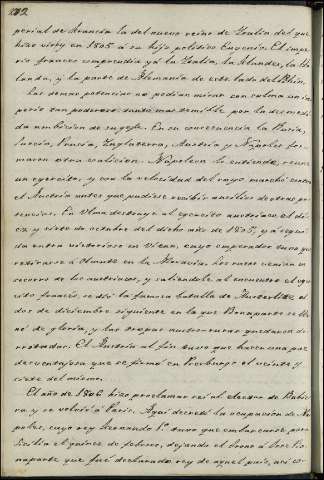 292
perial de Francia la del nuevo reino de Italia del que
hizo virey en 1805 á su hijo político Eugenio. El impe
rio frances comprendia yá la Italia, la Flandes, la Ho
landa, y la parte de Alemania de este lado del Rhin.
Las demas potencias no podian mirar con calma un im
perio tan poderoso tanto mas temible por la desmedi
da ambicion de su gefe. En su consecuencia la Rusia,
Suecia, Prusia, Inglaterra, Austria y Nápoles for
maron otra coalicion. Napoleon lo entiende, reune
un egercito, y con la velocidad del rayo marchó contra
el Austria antes que pudiese recibir auxilios de otras po
tencias. En Ulma destruye al egercito austriaco el di
ez y siete de octubre del dicho año de 1805, y á segui
da entra victorioso en Viena, cuyo emperador tuvo que
retirarse á Olmutz en la Moravia. Los rusos venian en
socorro de los austriacos, y saliendole al encuentro el eger
cito francés, se dió la famosa batalla de Austerlitz el
dos de diciembre siguiente en la que Bonaparte se lle
nó de gloria, y las tropas austro-rusas quedaron der
rotadas. El Austria al fin tuvo que hacer una paz
desventajosa que se firmó en Presburgo el veinte y
siete del mismo.
El año de 1806 hizo proclamar rei al elector de Babie
ra y se volvió á Paris. Aqui decretó la ocupacion de Ná
poles, cuyo rey Fernando 1º tuvo que embarcarse para
Sicilia el quince de febrero, dejando el trono á José Bo
naparte que fué declarado rey de aquel pais, asi co-